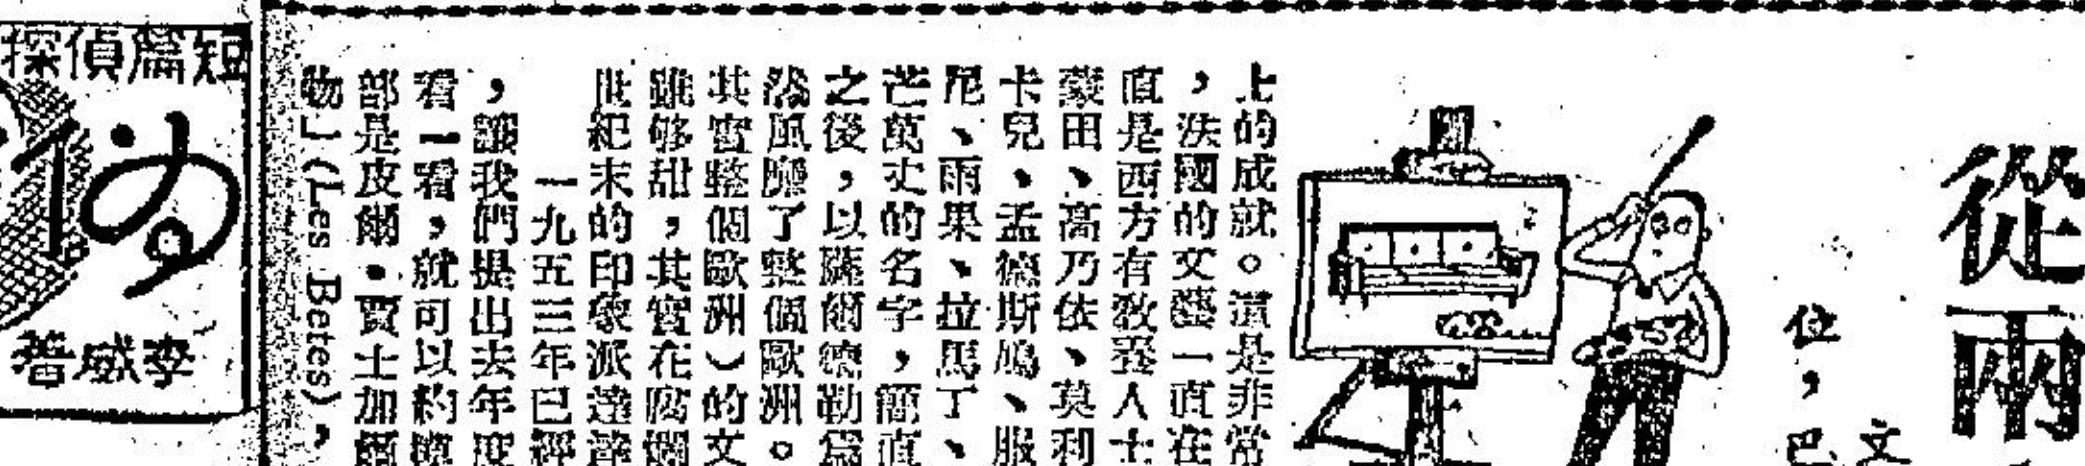 從兩
文
位，巴
上的成就。還是非常
，法國的文藝一直在
直是西方有教養人士
蒙田、高乃依、莫利
卡兒、孟德斯鳩、服
尼、雨果、拉馬丁、
芒萬丈的名字，簡直
之後，以薩爾德勒為
然風靡了整個歐洲。
其實整個歐洲）的文
雖够甜，其實在腐爛
世紀末的印象派達達
一九五三年已經
，讓我們提出去年度
看一看，就可以約摸
部是皮爾·賈士加爾
物」(Les Betes)，
短篇偵探
李威著